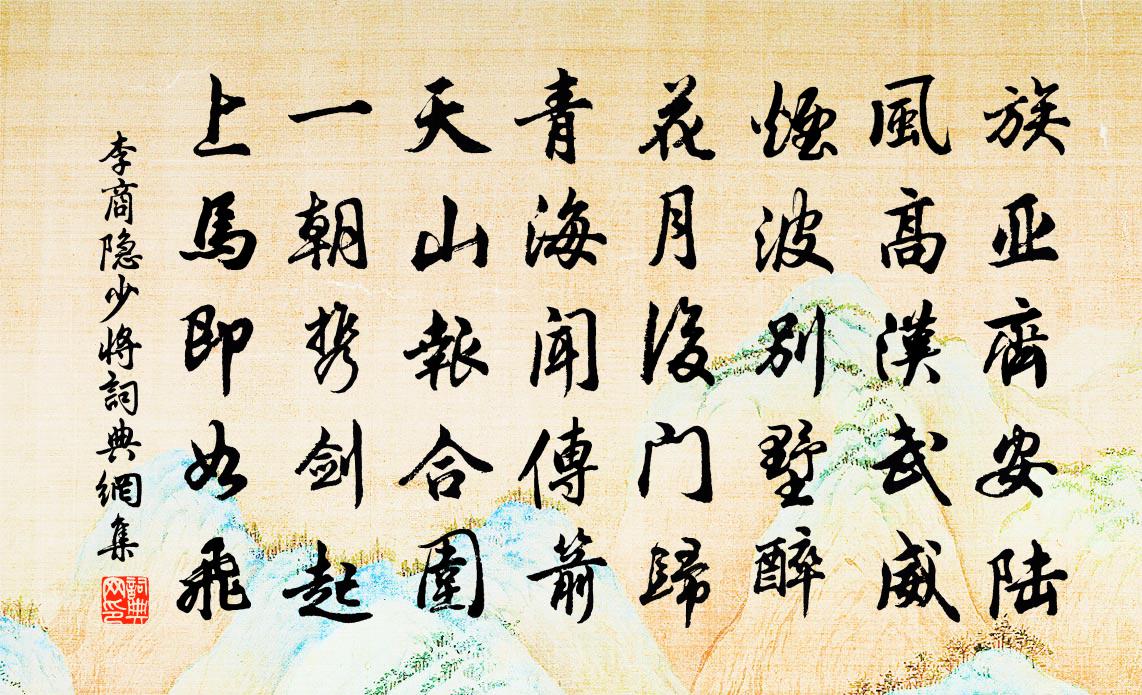 族亚齊安陆
風高漢武威
煙波別墅醉
花月後门歸
青海聞傳箭
天山報合圍
一朝携剑起
上馬即如飛
李商隐少将詞典網集
詞典网印